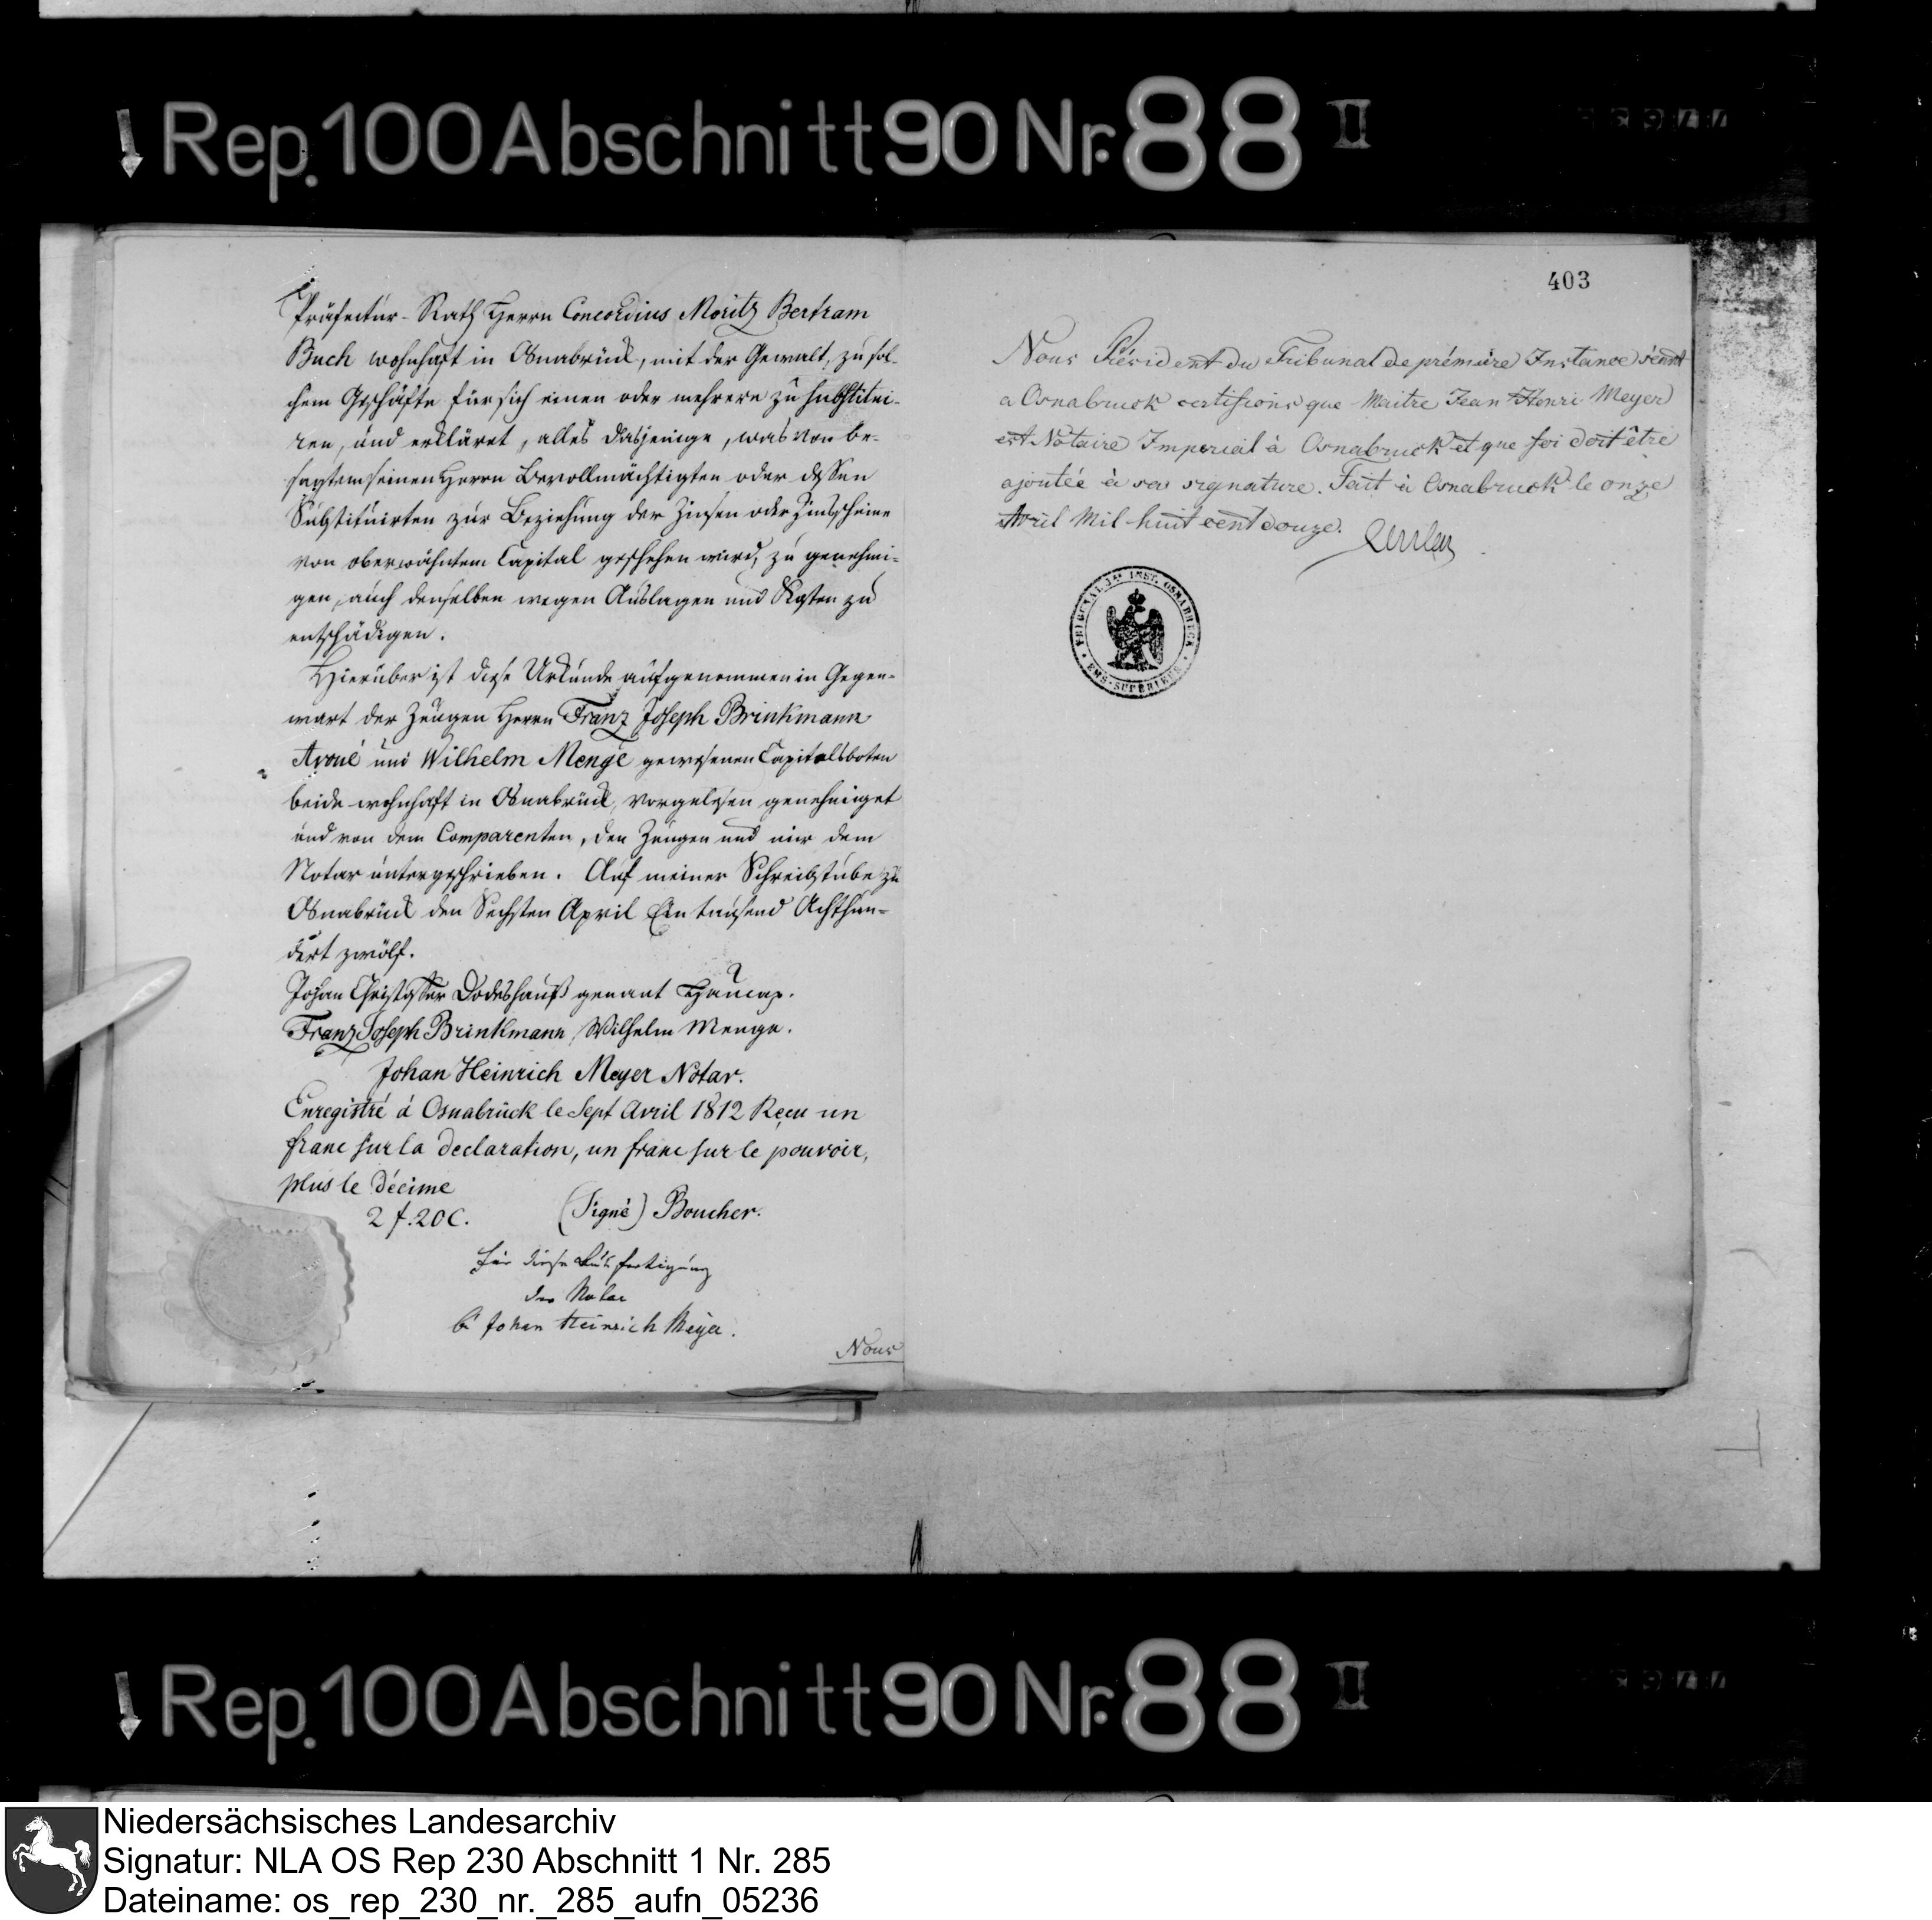 Rep. 100 Abschnitt 90 Nr. 88 II
Präfectur-Rath Herrn Concordius Moritz Bertram
Buch wohnhaft in Osnabrück, mit der Gewalt, zu sol-
chem Geschäfte für sich einen oder mehrere zu substitui-
ren, und erkläret, alles dasjenige, was von be-
sagtem seinen Herrn Bevollmächtigten oder dessen
Substituirten zur Beziehung der Zinsen oder Zinsscheine
von oberwähntem Capital geschehen wird, zu genehmi-
gen, auch denselben wegen Auslagen und Kosten zu
entschädigen.
Hierüber ist diese Urkunde aufgenommen in Gegen-
wart der Zeugen Herrn Franz Joseph Brinkmann
Avoué und Wilhelm Menge gewesenen Capitelsboten
beide wohnhaft in Osnabrück, vorgelesen genehmiget
und von dem Comparenten, den Zeugen und mir dem
Notar untergeschrieben. Auf meiner Schreibstube zu
Osnabrück den Sechsten April Ein tausend Achthun-
dert zwölf.
Johan Christoffer Dodeshauß genant
Franz Joseph Brinkmann, Wilhelm Menge.
Johan Heinrich Meyer Notar.
Enregistré à Osnabrück le Sept Avril 1812 Reçu un
franc sur la declaration, un franc sur le pouvoir,
plus le décime
2 f. 20 C. (Signé) Boucher.
für diese Ausfertigung
der Notar
Johan Heinrich Meyer.
Nous
403
Nous Président du Tribunal de première Instance séant
a Osnabruck certifions que Maitre Jean Henri Meyer
est Notaire Imperial à Osnabruck et que foi doit être
ajoutée à sa signature. Fait à Osnabruck le onze
Avril Mil huit cent douze.
TRIBUNAL Ire INST. OSNABRUCK
EMS-SUPERIEUR
Rep. 100 Abschnitt 90 Nr. 88 II
Niedersächsisches Landesarchiv
Signatur: NLA OS Rep 230 Abschnitt 1 Nr. 285
Dateiname: os_rep_230_nr._285_aufn_05236